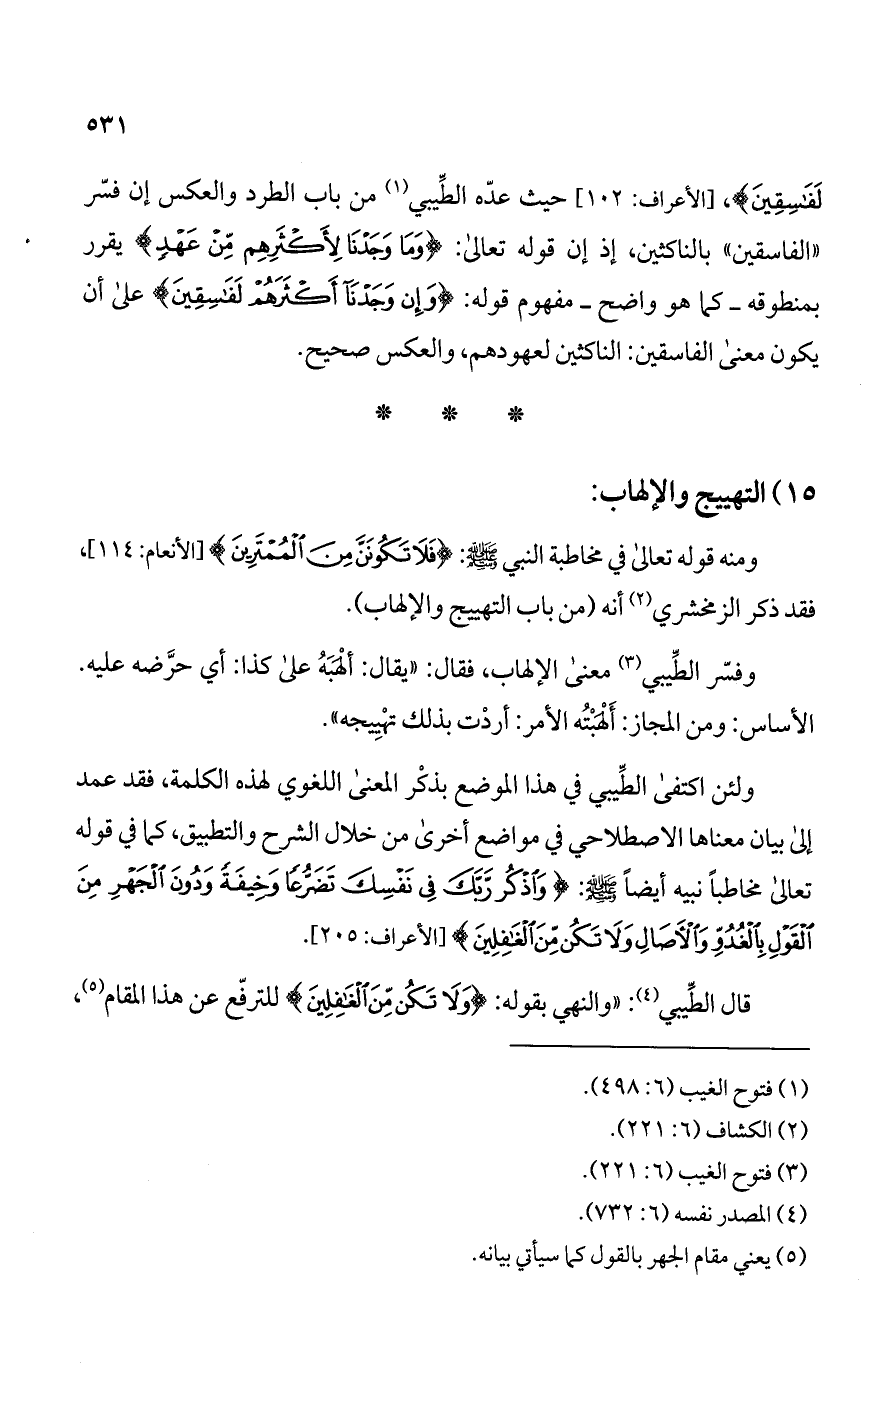 ٥٣١
لَفَٰسِقِينَ﴾، [الأعراف: ١٠٢] حيث عدّه الطِّيبي(١) من باب الطرد والعكس إن فسّر
«الفاسقين» بالناكثين، إذ إن قوله تعالىٰ: ﴿وَمَا وَجَدْنَا لِأَكْثَرِهِم مِّنْ عَهْدٍ﴾ يقرر
بمنطوقه ـ كما هو واضح ـ مفهوم قوله: ﴿وَإِن وَجَدْنَآ أَكْثَرَهُمْ لَفَٰسِقِينَ﴾ علىٰ أن
يكون معنىٰ الفاسقين: الناكثين لعهودهم، والعكس صحيح.
* * *
١٥) التهييج والإلهاب:
ومنه قوله تعالىٰ في مخاطبة النبي ﷺ: ﴿فَلَا تَكُونَنَّ مِنَ ٱلْمُمْتَرِينَ﴾ [الأنعام: ١١٤]،
فقد ذكر الزمخشري(٢) أنه (من باب التهييج والإلهاب).
وفسّر الطِّيبي(٣) معنىٰ الإلهاب، فقال: «يقال: ألْهَبَهُ علىٰ كذا: أي حرَّضه عليه.
الأساس: ومن المجاز: أَلْهَبْتُه الأمر: أردْت بذلك تهْيِيجه».
ولئن اكتفىٰ الطِّيبي في هذا الموضع بذكْر المعنىٰ اللغوي لهذه الكلمة، فقد عمد
إلىٰ بيان معناها الاصطلاحي في مواضع أخرىٰ من خلال الشرح والتطبيق، كما في قوله
تعالىٰ مخاطباً نبيه أيضاً ﷺ: ﴿وَٱذْكُر رَّبَّكَ فِى نَفْسِكَ تَضَرُّعًا وَخِيفَةً وَدُونَ ٱلْجَهْرِ مِنَ
ٱلْقَوْلِ بِٱلْغُدُوِّ وَٱلْآصَالِ وَلَا تَكُن مِّنَ ٱلْغَٰفِلِينَ﴾ [الأعراف: ٢٠٥].
قال الطِّيبي(٤): «والنهي بقوله: ﴿وَلَا تَكُن مِّنَ ٱلْغَٰفِلِينَ﴾ للترفّع عن هذا المقام(٥)،
(١) فتوح الغيب (٦: ٤٩٨).
(٢) الكشاف (٦: ٢٢١).
(٣) فتوح الغيب (٦: ٢٢١).
(٤) المصدر نفسه (٦: ٧٣٢).
(٥) يعني مقام الجهر بالقول كما سيأتي بيانه.